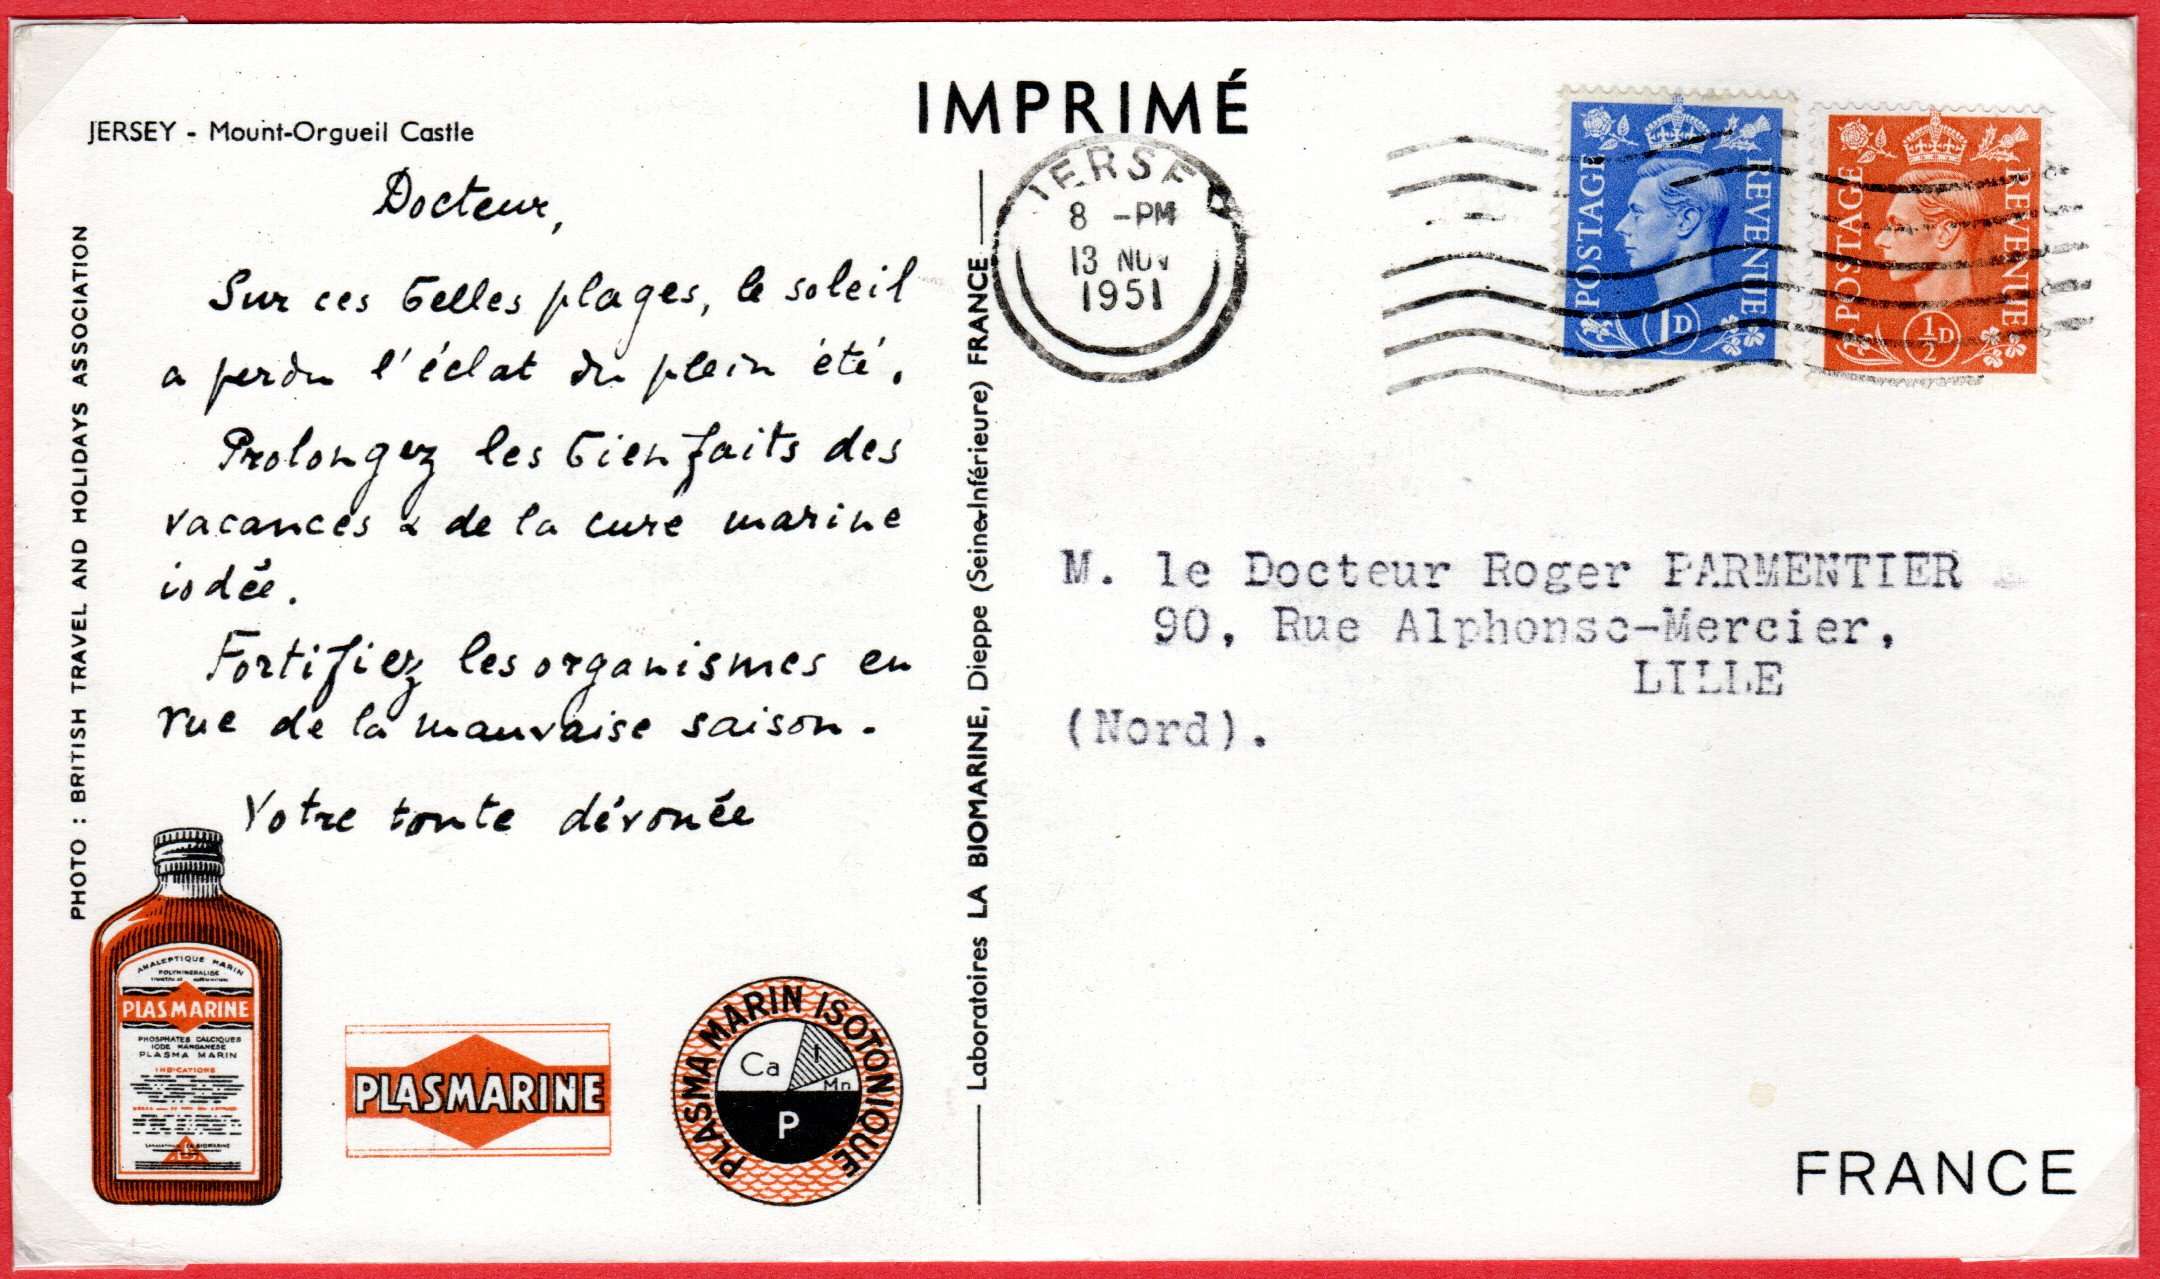 IMPRIMÉ
JERSEY - Mount-Orgueil Castle
Docteur,
Sur ces belles plages, le soleil
a perdu l'éclat du plein été.
Prolongez les bienfaits des
vacances & de la cure marine
iodée.
Fortifiez les organismes en
vue de la mauvaise saison.
Votre toute dévouée
PHOTO : BRITISH TRAVEL AND HOLIDAYS ASSOCIATION
ANALEPTIQUE MARIN
POLYMINERALISE
PLASMARINE
PHOSPHATES CALCIQUES
IODE MANGANESE
PLASMA MARIN
INDICATIONS
PLASMARINE
PLASMA MARIN ISOTONIQUE
Ca
I
Mn
P
Laboratoires LA BIOMARINE, Dieppe (Seine-Inférieure) FRANCE
JERSEY
8 -PM
13 NOV
1951
POSTAGE REVENUE
1D
POSTAGE REVENUE
½D
M. le Docteur Roger PARMENTIER
90, Rue Alphonse-Mercier,
LILLE
(Nord).
FRANCE